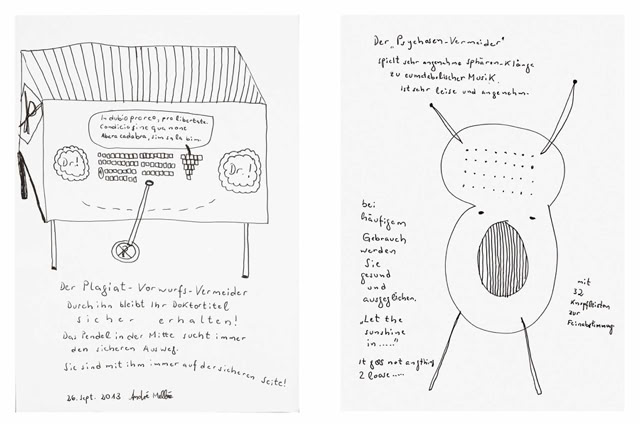 In dubio pro reo, pro libertate.
Condicio sine qua none
Abera cadabra, sim sala bim.
Dr!
Dr.!
Der Plagiat-Vorwurfs-Vermeider
Durch ihn bleibt Ihr Doktortitel
sicher erhalten!
Das Pendel in der Mitte sucht immer
den sicheren Ausweg.
Sie sind mit ihm immer auf der sicheren Seite!
26. Sept. 2013 André
Der „Psychosen-Vermeider"
spielt sehr angenehme Sphären-Klänge
zu eumdebolischer Musik.
Ist sehr leise und angenehm.
bei
häufigem
Gebrauch
werden
Sie
gesund
und
ausgeglichen.
„Let the
sunshine
in ....."
It goes not anything
2 loose ....
mit
32
Knopfleisten
zur
Feinabstimmung